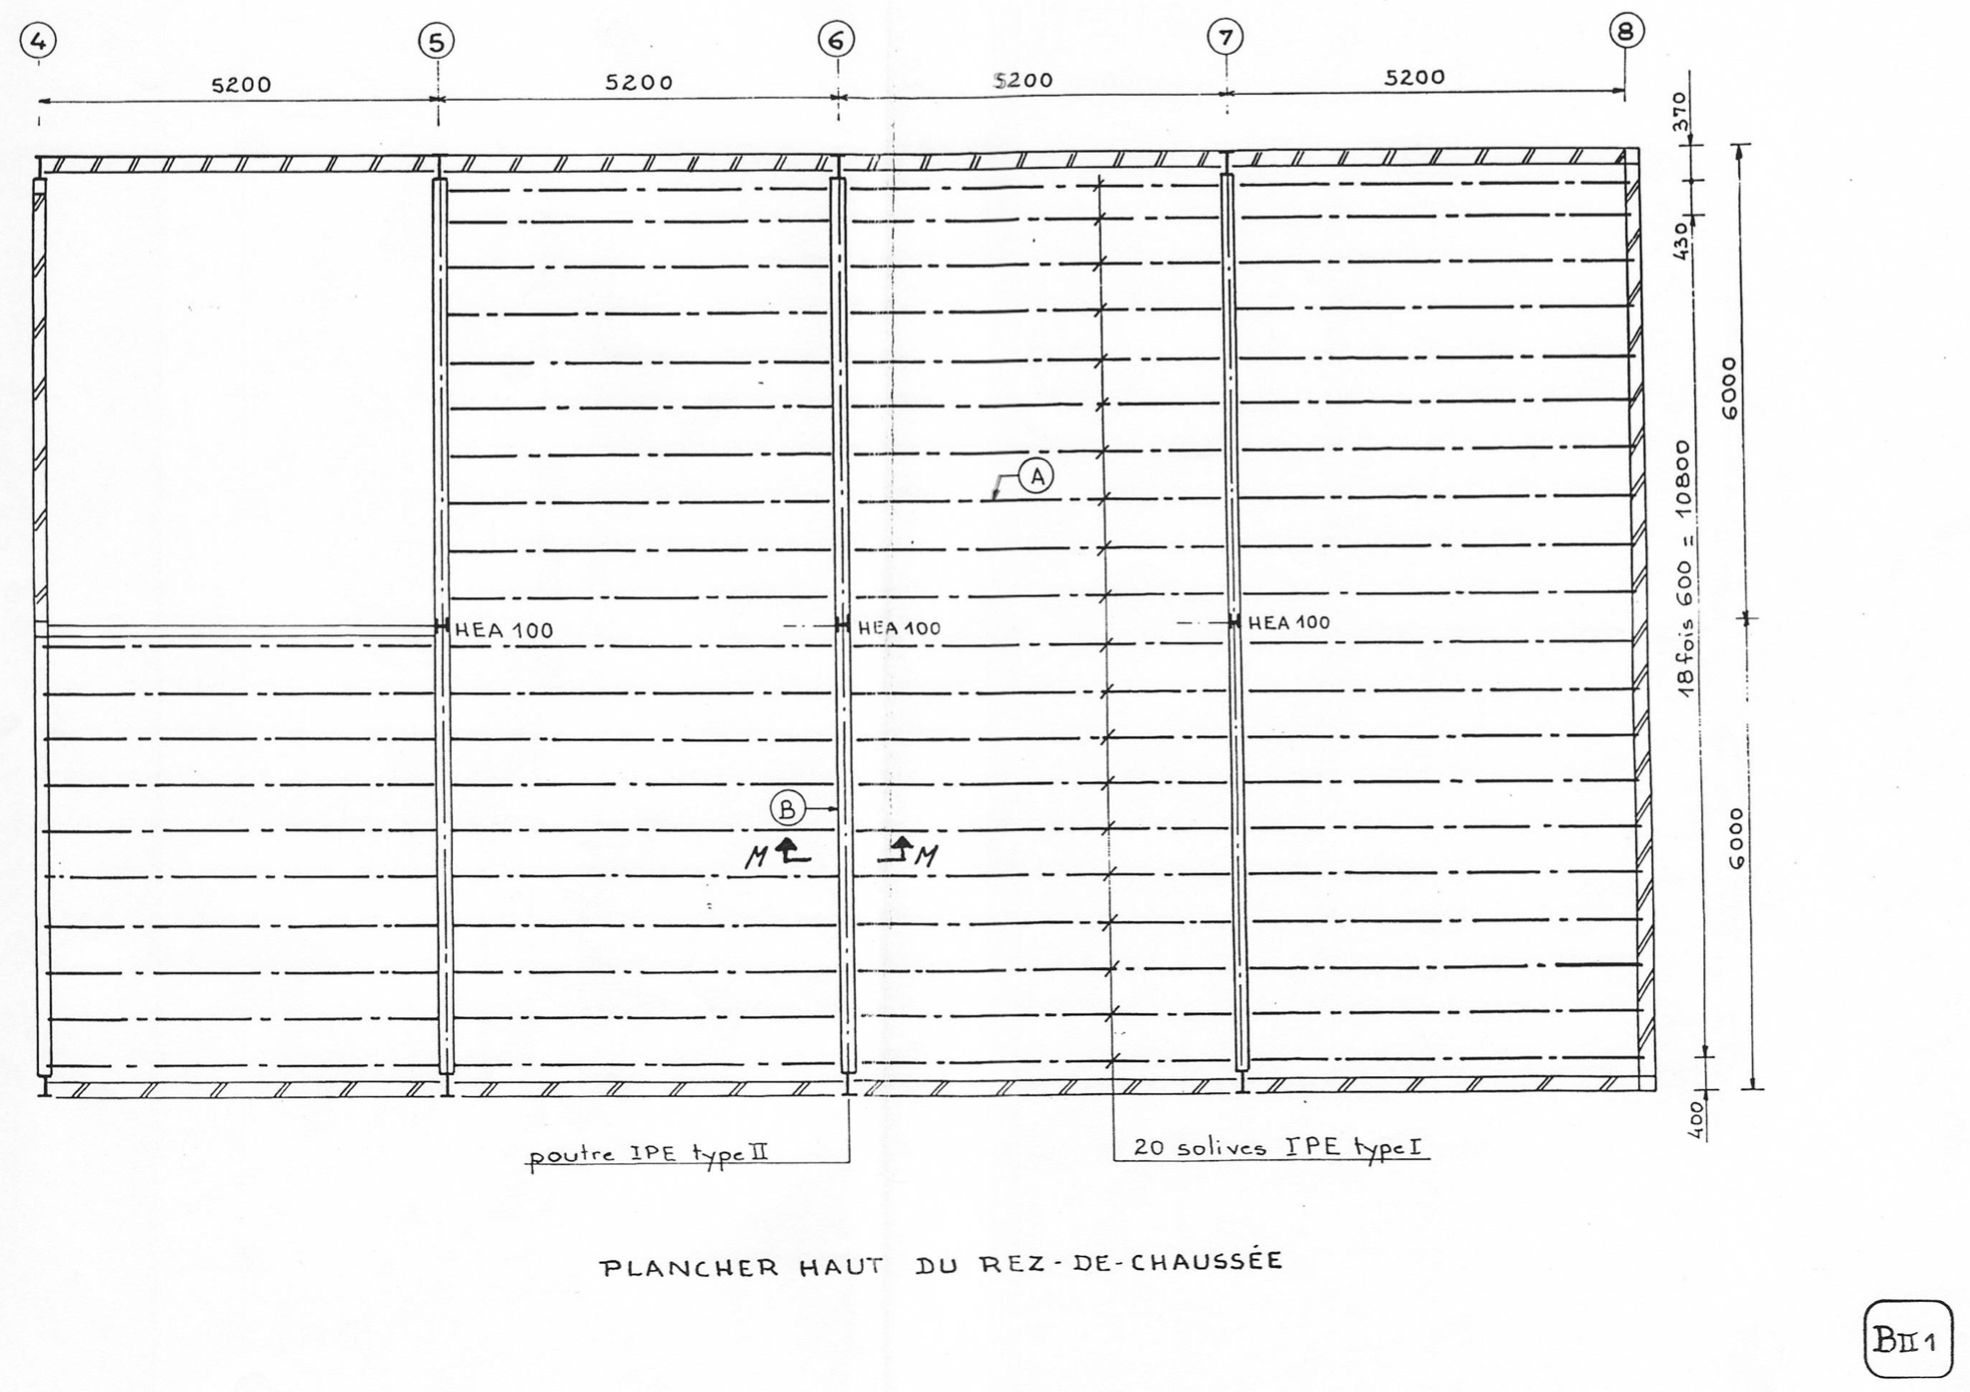 4 5 6 7 8
5200 5200 5200 5200
370
430
A
6000
18 fois 600 = 10800
HEA 100 HEA 100 HEA 100
B
M M
6000
400
poutre IPE type II
20 solives IPE type I
PLANCHER HAUT DU REZ-DE-CHAUSSÉE
BII1